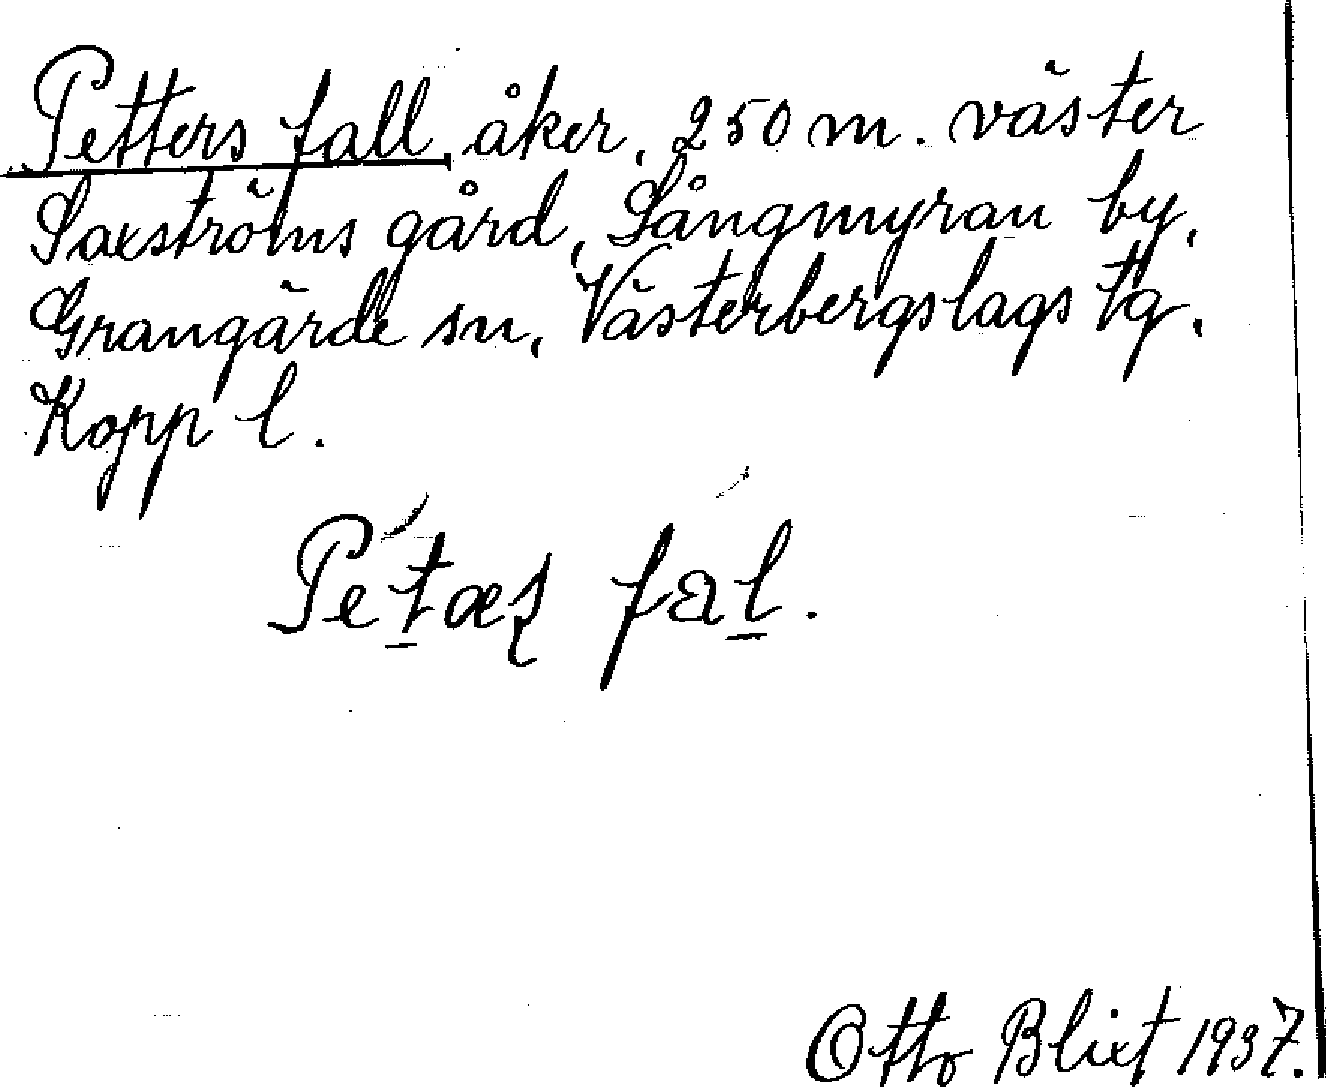 Petters fall, åker, 250 m. väster
Saxströms gård, Sångmyran by,
Grangärde sn, Västerbergslags tg.
Kopp l.
Pétæʂ fàl.
Otto Blixt 1937.